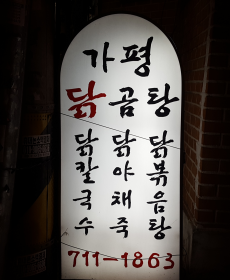 가평
닭곰탕
닭볶음탕
닭야채죽
닭칼국수
711-1863